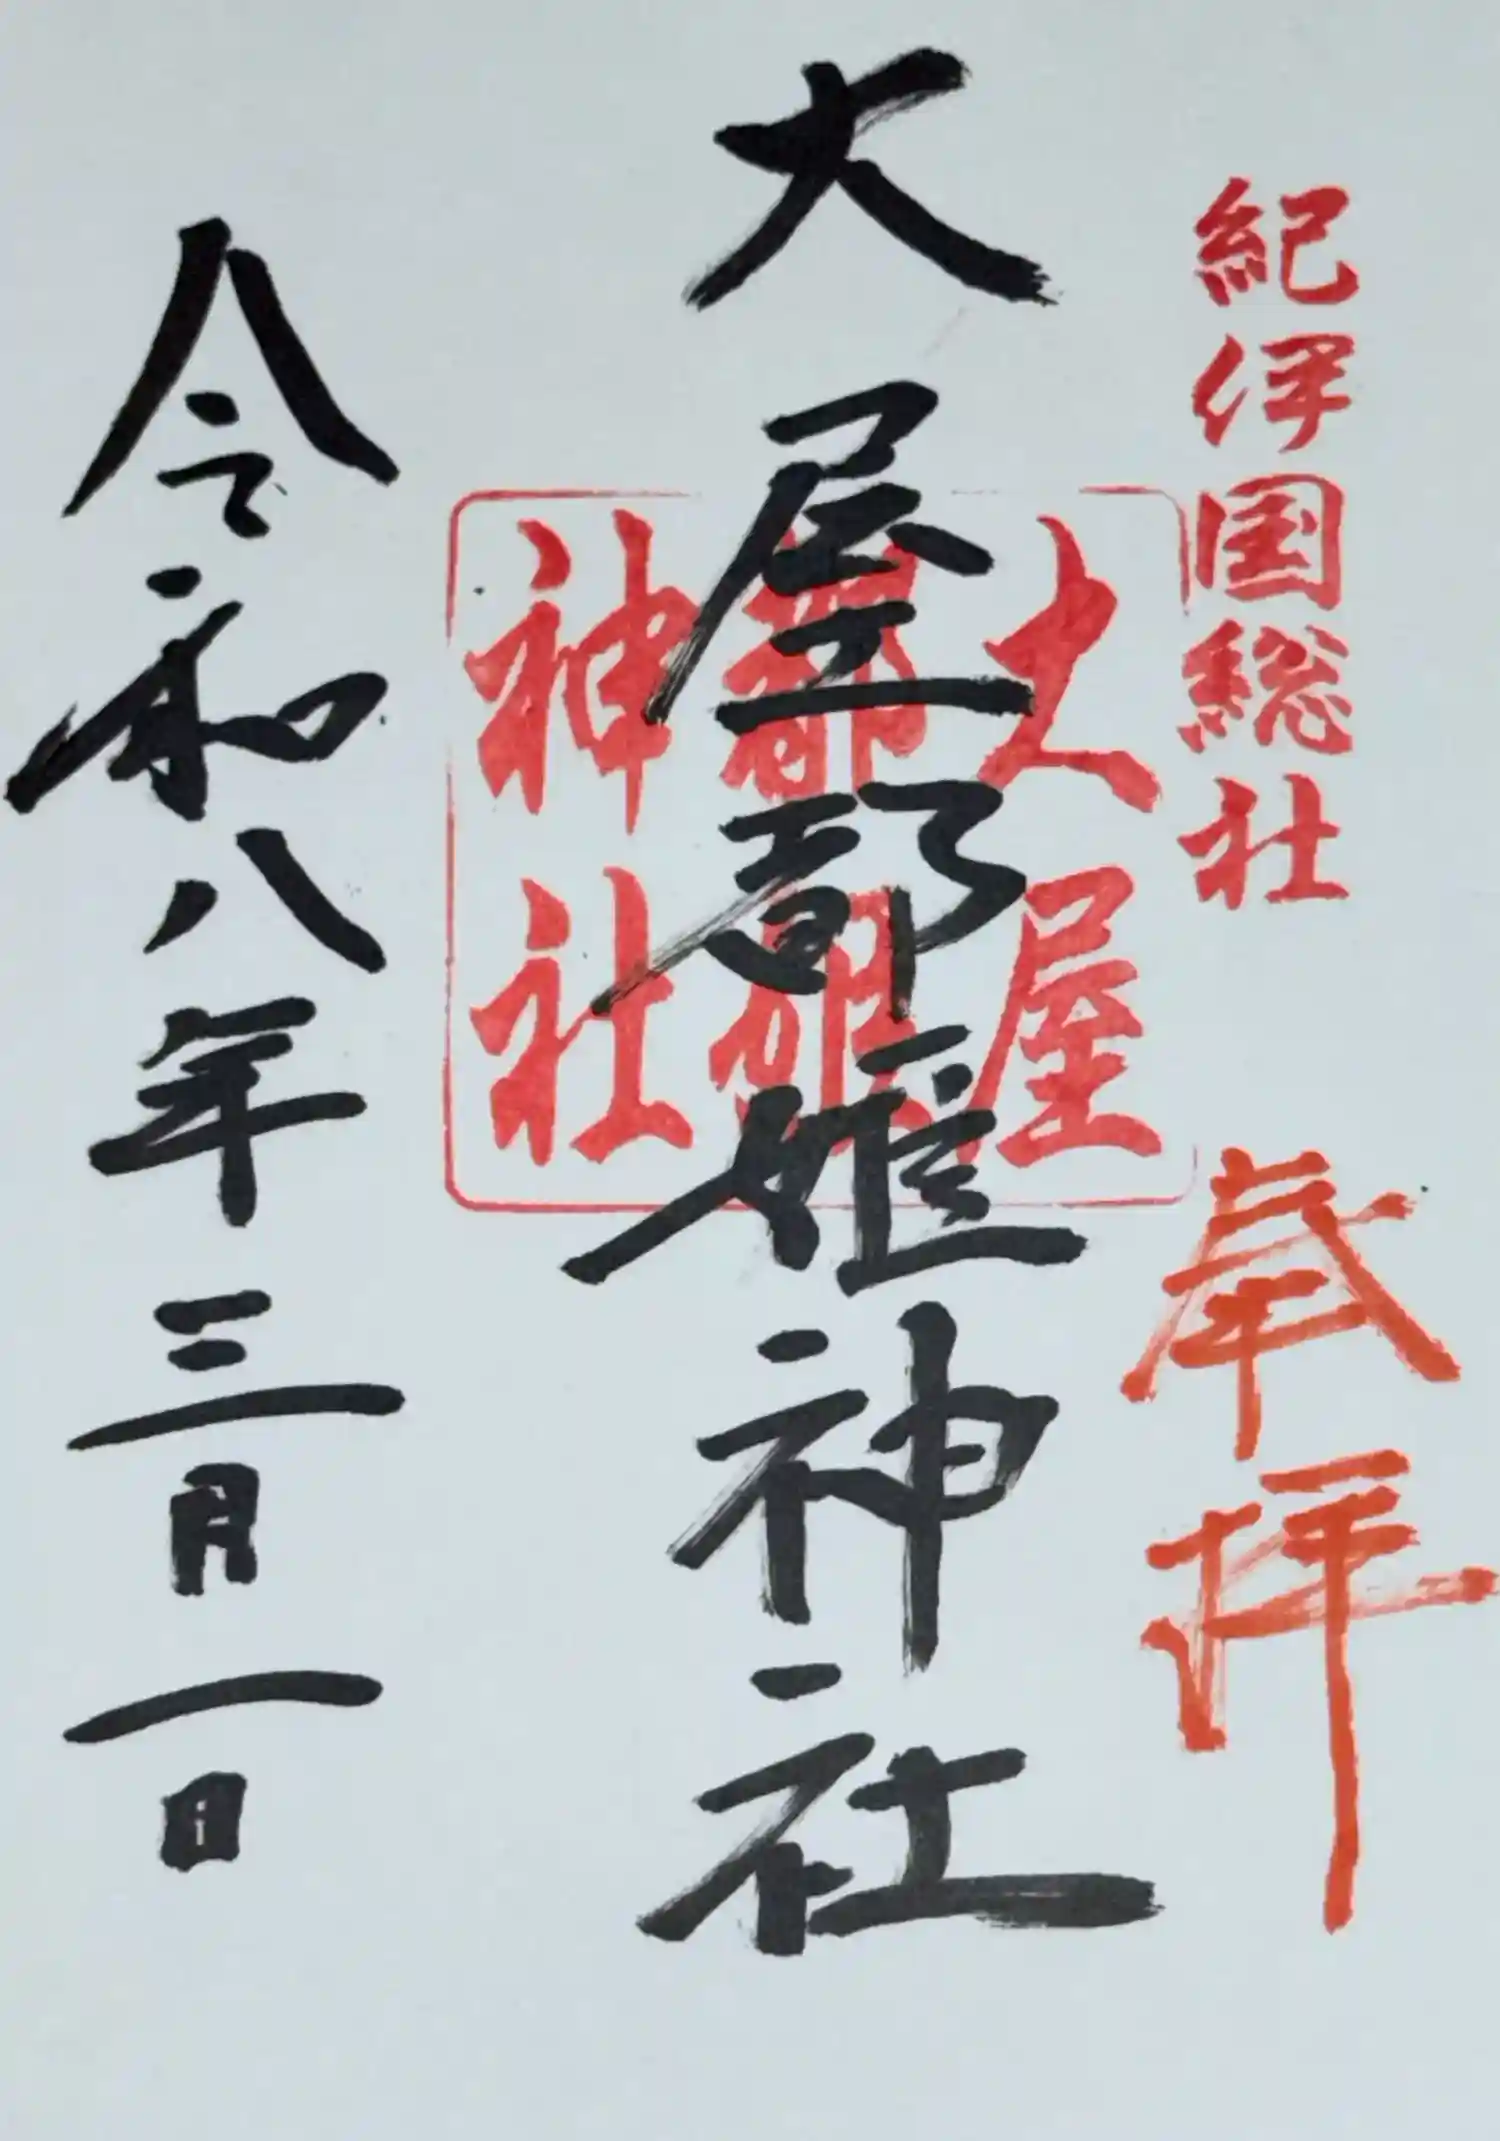 紀伊国総社
奉拝
大屋都姫神社
大屋
都姫
神社
令和八年三月一日